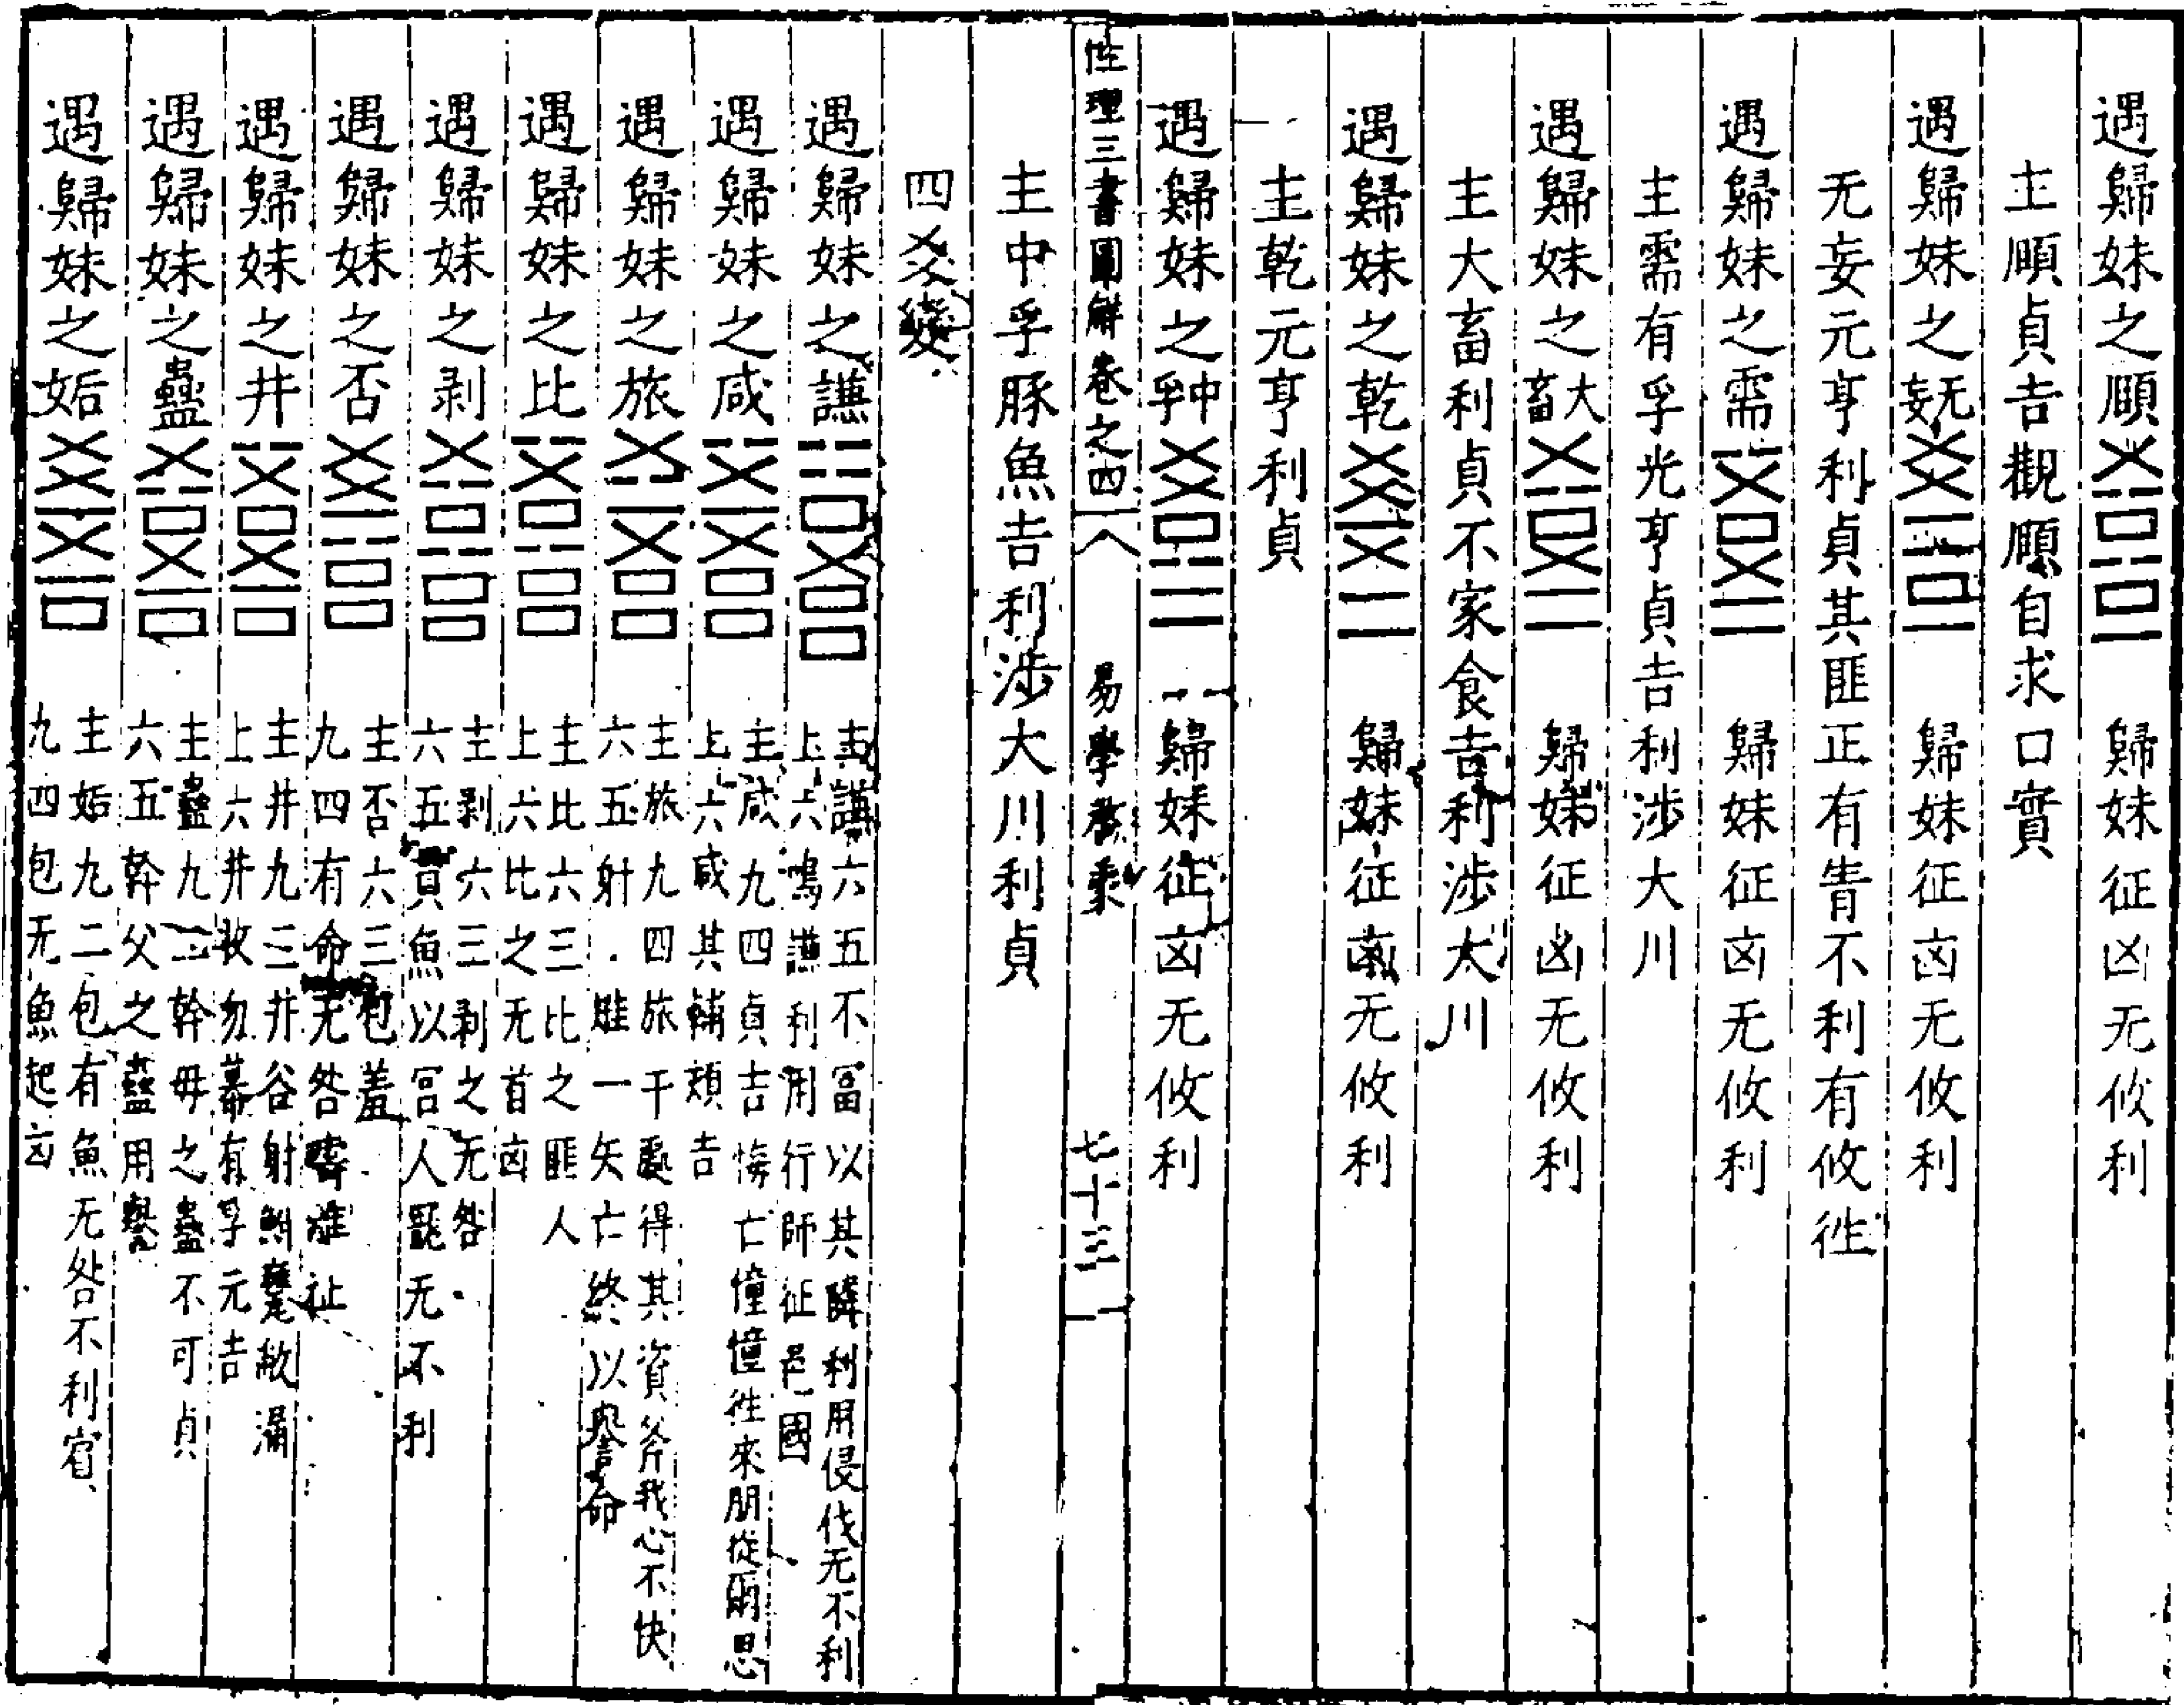 遇歸妹之頤 歸妹征凶无攸利
主頤貞吉觀頤自求口實
遇歸妹之无妄 歸妹征凶无攸利
无妄元亨利貞其匪正有眚不利有攸徃
遇歸妹之需 歸妹征凶无攸利
主需有孚光亨貞吉利涉大川
遇歸妹之大畜 歸妹征凶无攸利
主大畜利貞不家食吉利涉大川
遇歸妹之乾 歸妹征凶无攸利
主乾元亨利貞
遇歸妹之中孚 歸妹征凶无攸利
性理三書圖解卷之四 易學 七十三
主中孚豚魚吉利涉大川利貞
四爻變
遇歸妹之謙 主謙六五不冨以其鄰利用侵伐无不利
上六鳴謙利用行師征邑國
遇歸妹之咸 主咸九四貞吉悔亡憧憧徃來朋從爾思
上六咸其輔頰吉
遇歸妹之旅 主旅九四旅于處得其資斧我心不快
六五射雉一矢亡終以譽命
遇歸妹之比 主比六三比之匪人
上六比之无首凶
遇歸妹之剥 主剥六三剥之无咎
六五貫魚以宫人寵无不利
遇歸妹之否 主否六三包羞
九四有命无咎疇離祉
遇歸妹之井 主井九二井谷射鮒甕敝漏
上六井收勿幕有孚元吉
遇歸妹之蠱 主蠱九二幹毋之蠱不可貞
六五幹父之蠱用譽
遇歸妹之姤 主姤九二包有魚无咎不利賓
九四包无魚起凶